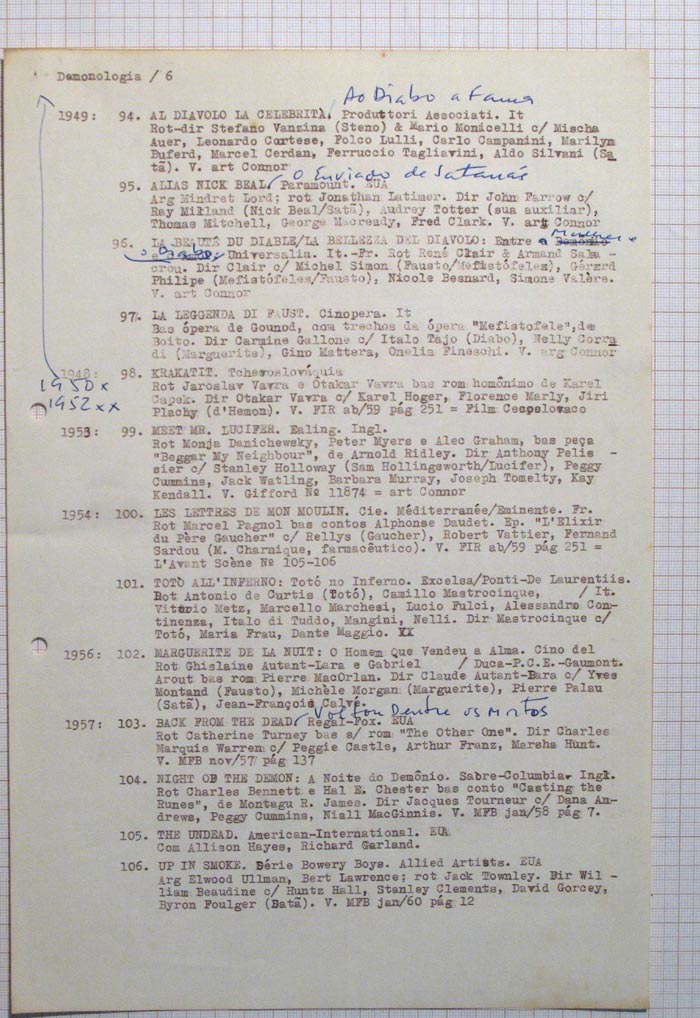 Demonologia / 6
Ao Diabo a Fama
1949: 94. AL DIAVOLO LA CELEBRITÀ. Produttori Associati. It
Rot-dir Stefano Vanzina (Steno) & Mario Monicelli c/ Mischa
Auer, Leonardo Cortese, Folco Lulli, Carlo Campanini, Marilyn
Buferd, Marcel Cerdan, Ferruccio Tagliavini, Aldo Silvani (Sa
tã). V. art Connor
O Enviado de Satanás
95. ALIAS NICK BEAL Paramount. EUA
Arg Mindret Lord; rot Jonathan Latimer. Dir John Farrow c/
Ray Milland (Nick Beal/Satã), Audrey Totter (sua auxiliar),
Thomas Mitchell, George Macready, Fred Clark. V. art Connor
96. LA BEAUTÉ DU DIABLE/LA BELLEZZA DEL DIAVOLO: Entre a Mulher e
o Diabo Universalia. It.-Fr. Rot René Clair & Armand Sala -
crou. Dir Clair c/ Michel Simon (Fausto/Mefistófeles), Gérard
Philipe (Mefistófeles/Fausto), Nicole Besnard, Simone Valère.
V. art Connor
97. LA LEGGENDA DI FAUST. Cinopera. It
Bas ópera de Gounod, com trechos da ópera "Mefistofele", de
Boito. Dir Carmine Gallone c/ Italo Tajo (Diabo), Nelly Corra
di (Marguerite), Gino Mattera, Onelia Fineschi. V. arg Connor
1948: 98. KRAKATIT. Tchecoslováquia
1950 x
1952 xx
Rot Jaroslav Vavra e Otakar Vavra bas rom homônimo de Karel
Capek. Dir Otakar Vavra c/ Karel Hoger, Florence Marly, Jiri
Plachy (d'Hemon). V. FIR ab/59 pág 251 = Film Cecoslovaco
1953: 99. MEET MR. LUCIFER. Ealing. Ingl.
Rot Monja Danichewsky, Peter Myers e Alec Graham, bas peça
"Beggar My Neighbour", de Arnold Ridley. Dir Anthony Pelis -
sier c/ Stanley Holloway (Sam Hollingsworth/Lucifer), Peggy
Cummins, Jack Watling, Barbara Murray, Joseph Tomelty, Kay
Kendall. V. Gifford Nº 11874 = art Connor
1954: 100. LES LETTRES DE MON MOULIN. Cie. Méditerranée/Eminente. Fr.
Rot Marcel Pagnol bas contos Alphonse Daudet. Ep. "L'Elixir
du Père Gaucher" c/ Rellys (Gaucher), Robert Vattier, Fernand
Sardou (M. Charnique, farmacêutico). V. FIR ab/59 pág 251 =
L'Avant Scène Nº 105-106
101. TOTÒ ALL'INFERNO: Totó no Inferno. Excelsa/Ponti-De Laurentiis.
Rot Antonio de Curtis (Totó), Camillo Mastrocinque, / It.
Vittorio Metz, Marcello Marchesi, Lucio Fulci, Alessandro Con-
tinenza, Italo di Tuddo, Mangini, Nelli. Dir Mastrocinque c/
Totó, Maria Frau, Dante Maggio. XX
1956: 102. MARGUERITE DE LA NUIT: O Homem Que Vendeu a Alma. Cino del
Rot Ghislaine Autant-Lara e Gabriel / Duca-P.C.E.-Gaumont.
Arout bas rom Pierre MacOrlan. Dir Claude Autant-Bara c/ Yves
Montand (Fausto), Michèle Morgan (Marguerite), Pierre Palau
(Satã), Jean-François Calvé.
Voltou Dentre os Mortos
1957: 103. BACK FROM THE DEAD Regal-Fox. EUA
Rot Catherine Turney bas s/ rom "The Other One". Dir Charles
Marquis Warren c/ Peggie Castle, Arthur Franz, Marsha Hunt.
V. MFB nov/57 pág 137
104. NIGHT OF THE DEMON: A Noite do Demônio. Sabre-Columbia. Ingl.
Rot Charles Bennett e Hal E. Chester bas conto "Casting the
Runes", de Montagu R. James. Dir Jacques Tourneur c/ Dana An-
drews, Peggy Cummins, Niall MacGinnis. V. MFB jan/58 pág 7.
105. THE UNDEAD. American-International. EUA
Com Allison Hayes, Richard Garland.
106. UP IN SMOKE. Série Bowery Boys. Allied Artists. EUA
Arg Elwood Ullman, Bert Lawrence; rot Jack Townley. Dir Wil -
liam Beaudine c/ Huntz Hall, Stanley Clements, David Gorcey,
Byron Foulger (Satã). V. MFB jan/60 pág 12